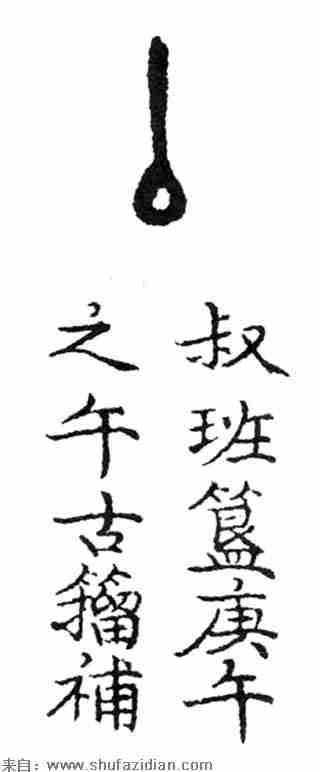 叔班簋庚午
之午古籀補
来自：www.shufazidian.com